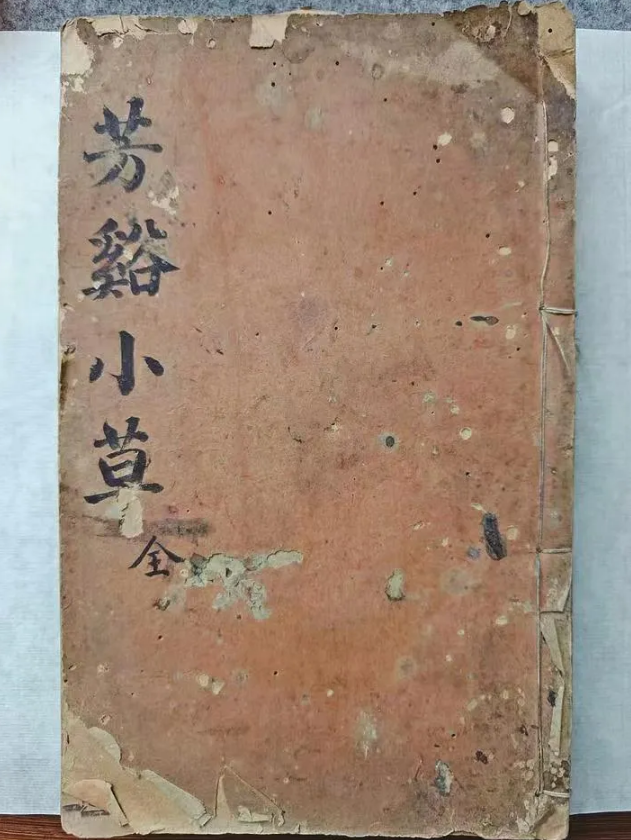 芳谿小草
全